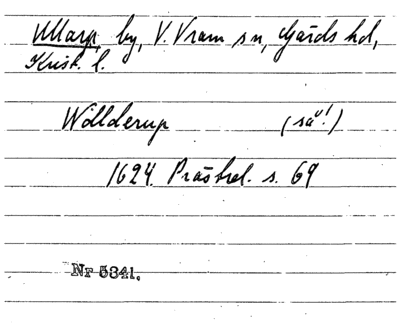 Ullarp, by, V. Vram sn, Gärds hd,
Krist. l.
Wollderup (så!)
1624. Prästrel. s. 69
Nr 5341.